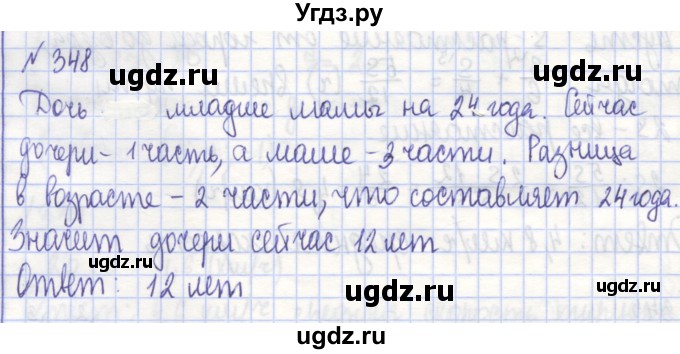 Угдз.ру
№ 348
ugdz.ru ugdz.ru
Дочь младше мамы на 24 года. Сейчас
дочери - 1 часть, а маме - 3 части. Разница
ugdz.ru
в возрасте - 2 части, что составляет 24 года.
ugdz.ru ugdz.ru
Значит дочери сейчас 12 лет
Ответ: 12 лет
ugdz.ru
ugdz.ru ugdz.ru